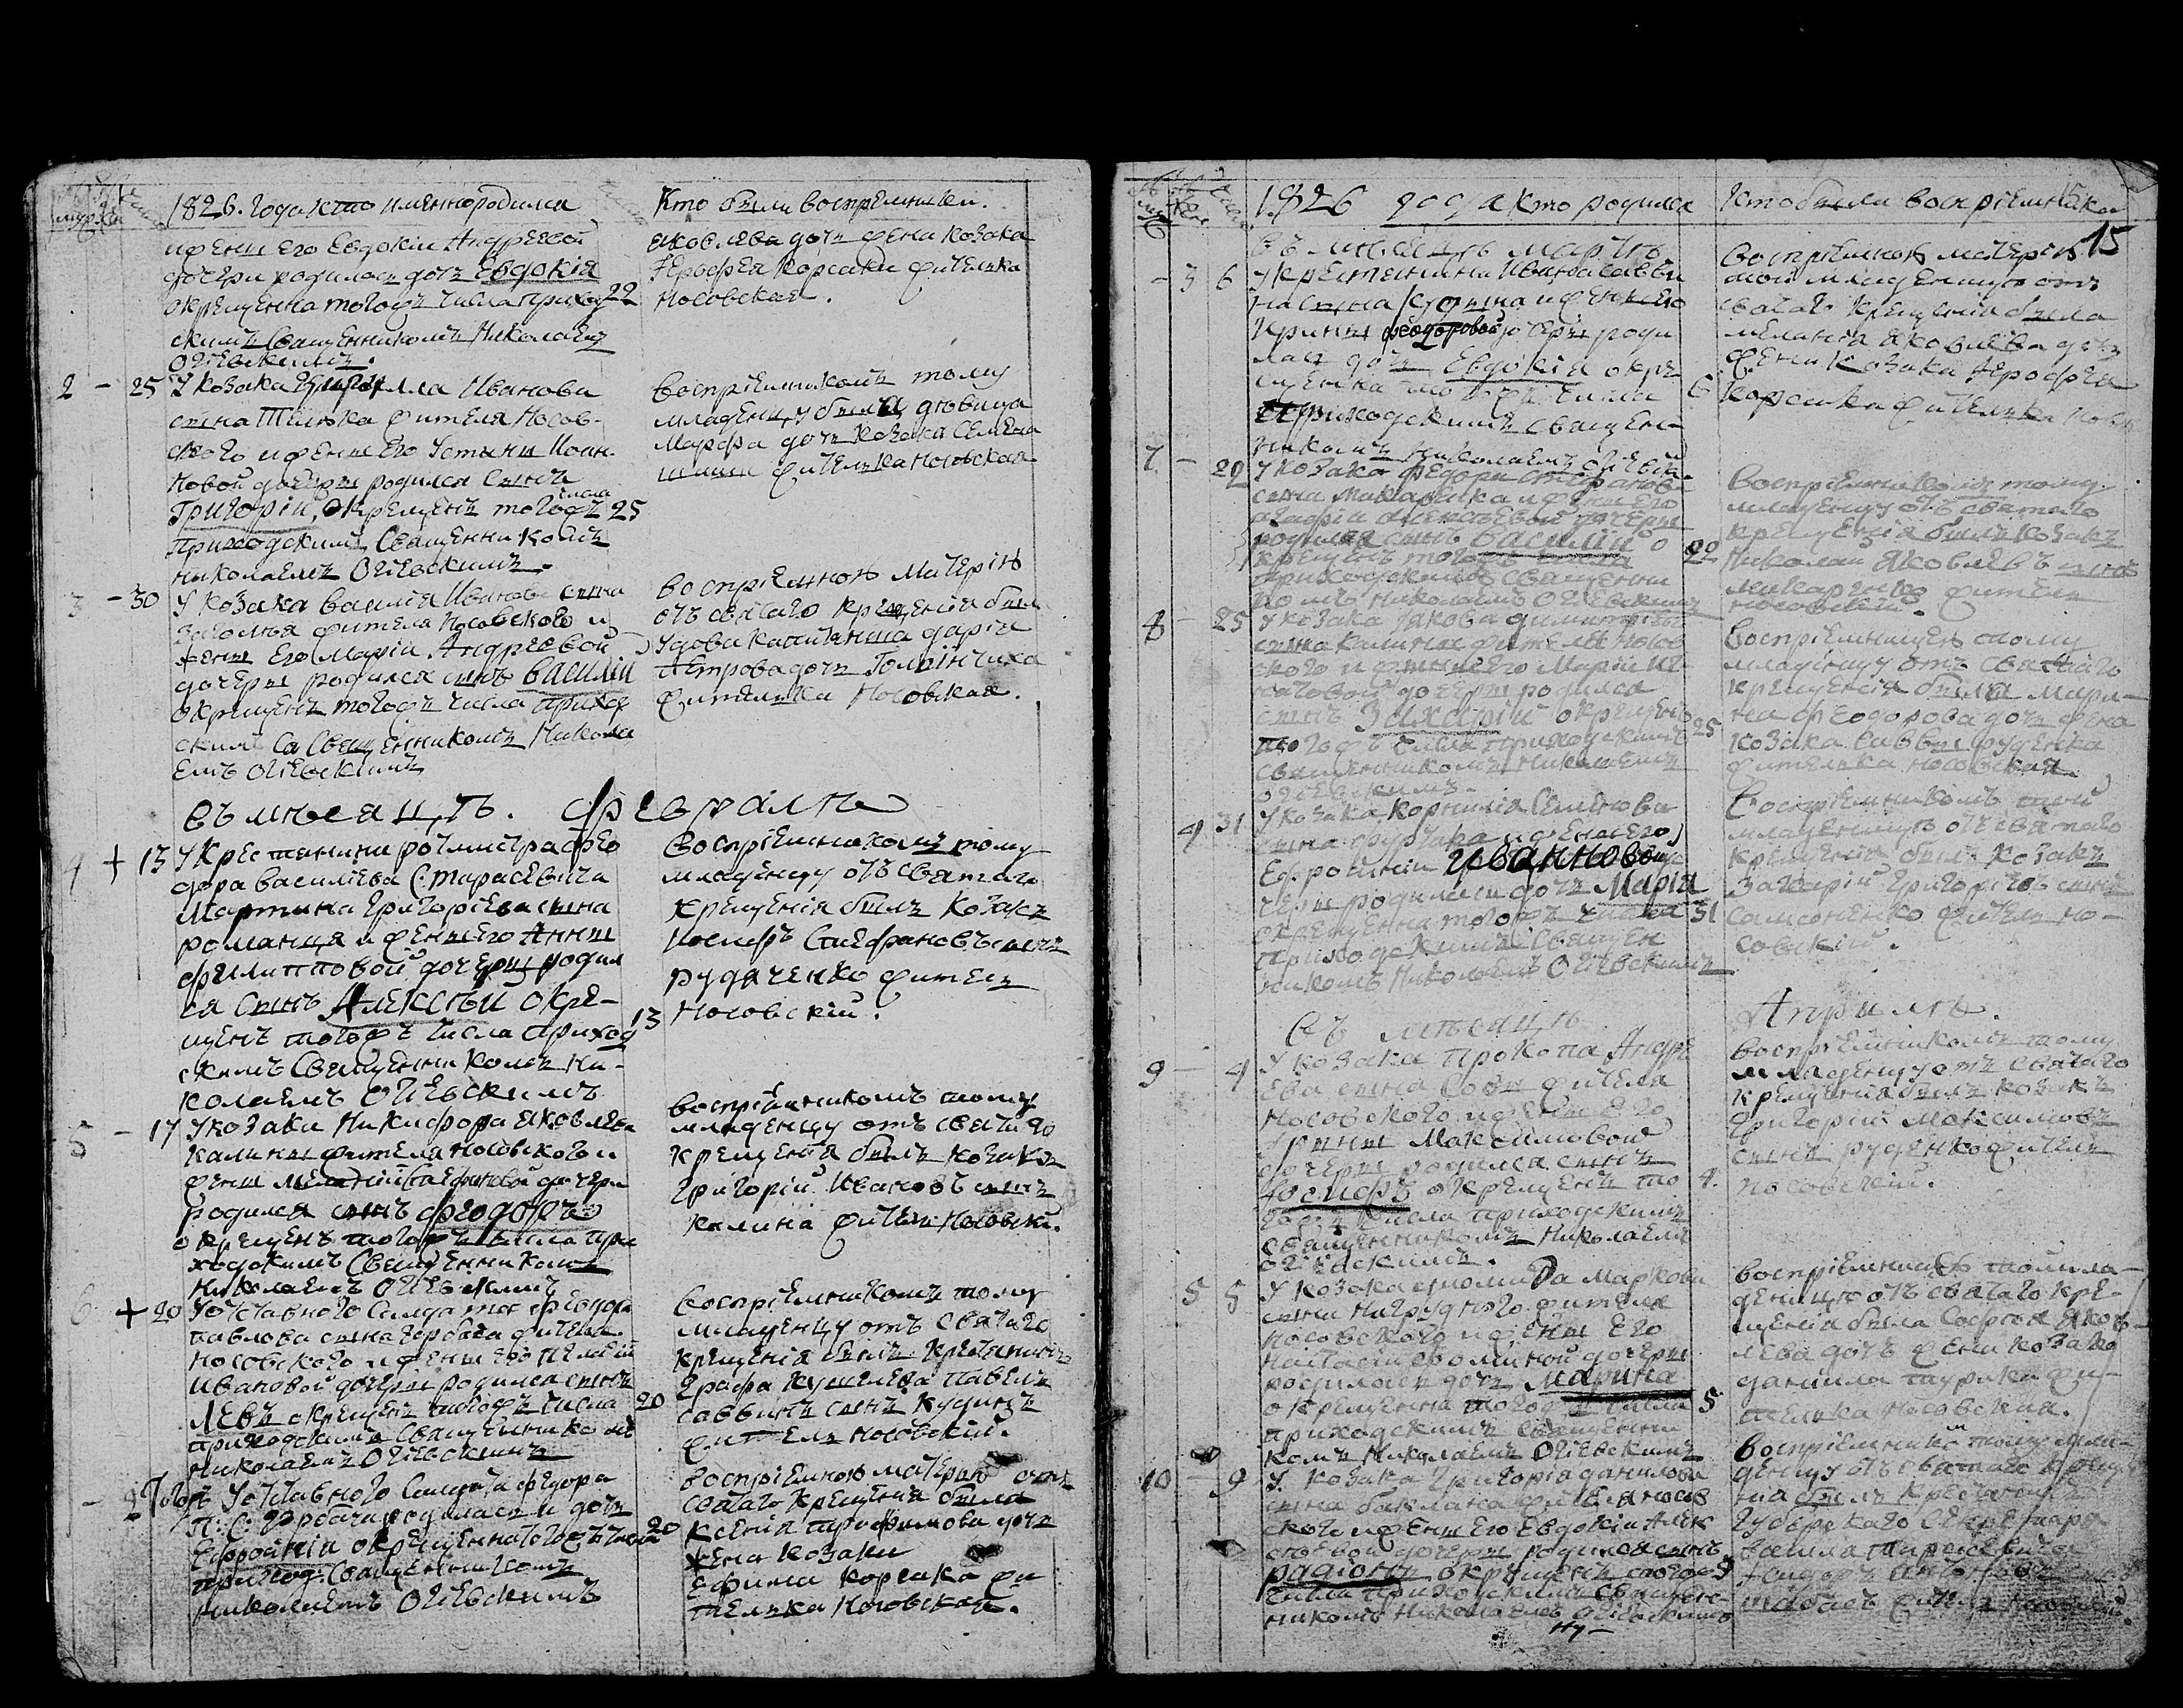 1826. Года кто именно родилса
Кто были воспремники.
и жены его Евдокіи Андреевой
дочери родилась дочь Евдокія
окрещенна тогожъ числа приход 22
скимъ Священникомъ Николаемъ
Огіевскимъ.
яковлева дочь жена козака
Ерофея Корсаки жителька
Носовская.
2 - 25 У козака Иванова
сына жителя Носов-
ского и жены его Устины Иоан-
новой дочери родился сынъ
числа
Григорій, окрещенъ тогожъ 25
Приходскимъ Священникомъ
Николаемъ Огіевскимъ.
воспріемникомъ тому
младенцу была девица
Марфа дочь козака Семена
жителька Носовская
3 - 30 У козака василія Иванова сына
жителя Носовского и
жены Его Маріи Андреевой
дочери родился сынъ василій
окрещенъ тогожъ числа приход
скимъ Священникомъ Никола
емъ Огіевскимъ
воспріемною матерію
отъ святаго крещенія была
удова дарія
Петрова дочь
жителька Носовская.
въ мѣсяцѣ. февралѣ
4 + 13 У крестянина ротмистра фео
дора василіева Тарасевича
Мартина Григоріева сына
романця и жены его Анны
филипповой дочери родил
ся сынъ Алексѣй окре-
щенъ тогожъ числа приход 13
скимъ Священникомъ Ни-
колаемъ Огіевскимъ
воспріемникомъ тому
младенцу отъ святаго
крещенія былъ козакъ
Иосифъ Стефановъ сынъ
рудаченко житель
Носовскій.
5 - 17 У козака Никифора яковлева
калины жителя носовского и
жены дочери
родился сынъ феодоръ
окрещенъ тогожъ числа при
ходскимъ Священникомъ
Николаемъ Огіевскимъ
воспріемникомъ тому
младенцу отъ святаго
крещенія былъ козакъ
Григорій Ивановъ сынъ
калина житель Носовскій.
6 + 20 У отставного Солдата феодора
павлова сына горбача жителя
носовского и жены его пелагіи
Ивановой дочери родился сынъ
Левъ окрещенъ тогожъ числа 20
приходскимъ Священникомъ
Николаемъ Огіевскимъ
воспріемникомъ тому
младенцу отъ святаго
крещенія былъ крестянинъ
Графа кушелева павелъ
саввинъ сынъ кудинъ
житель носовскій.
- 2 Тогожъ У отставного Солдата феодора
П: С: родилась и дочь
Ефросинія окрещенна тогожъ числа 20
приход: Священникомъ
николаемъ Огіевскимъ
воспріемною матерію отъ
святаго крещенія была
ксенія трофимова дочь
жена козака
ефима корсака жи
телька Носовская.
1826 года кто родился
кто были воспріемники
15
въ мѣсяцѣ мартѣ
- 3 6 У крестянина Ивана савви
на сына кудина и жены его
Ирины феодоровой дочери роди
лась дочь Евдокія окре
щенна тогожъ числа 6
приходскимъ священ-
никомъ Николаемъ Огіевск
воспріемною матерію
той младенцицѣ отъ
святаго крещенія была
меланія яковлева дочь
жена козака Ерофея
корсака жителька носов
7 - 22 У козака федора стефанов
сына макаренка и жены его
агафіи алексѣевой дочери
родился сынъ василій о
крещенъ тогожъ числа 22
приходскимъ священни
комъ николаемъ Огіевскимъ
воспріемникомъ тому
младенцу отъ святаго
крещенія былъ козакъ
Николай яковлевъ сынъ
макаренко житель
носовскій.
8 - 25 У козака якова димитріева
сына калины жителя носов
ского и жены его Маріи иг-
натовой дочери родился
сынъ Захарій окрещенъ 25
тогожъ числа приходскимъ
священникомъ николаемъ
огіевскимъ.
воспріемницею тому
младенцу отъ святаго
крещенія была мари-
на феодорова дочь жена
козака саввы руденка
жителька носовская.
4 31 У козака корнилія Семенова
сына и жены его
Ефросиніи Ивановой до
чери родилась дочь Марія
окрещенна тогожъ числа 31
приходскимъ Священ
никомъ Николаемъ Огіевскимъ
Воспріемникомъ той
младенцицѣ отъ святаго
крещенія былъ козакъ
Захарій Григоріевъ сынъ
самсоненко житель но-
совскій.
въ мѣсяцѣ
Априлѣ.
9 - 4 У козака Прокопа Андре
ева сына жителя
Носовского и жены его
Ирины Максимовой
дочери родился сынъ
Иосифъ окрещенъ то 4.
гожъ числа приходскимъ
священникомъ Николаемъ
огіевскимъ.
воспріемникомъ тому
младенцу отъ святаго
крещенія былъ козакъ
Григорій максимовъ
сынъ руденко житель
носовскій.
5 5 У козака Маркова
сына жителя
носовского и жены его
настасіи дочери
родилась дочь Марина
окрещенна тогожъ числа 5
приходскимъ священни
комъ Николаемъ Огіевскимъ
воспріемницею той мла-
денцицѣ отъ святаго кре-
щенія была Софія яков-
лева дочь жена козака
данила жи-
телька носовская.
10 - 9 У козака Григорія данилова
сына баклана жителя носов
ского и жены его Евдокіи Алек
сѣевой дочери родился сынъ
радіонъ окрещенъ тогожъ 9
числа приходскимъ священ-
никомъ Николаемъ Огіевскимъ
воспріемникомъ тому мла-
денцу отъ святаго креще
нія былъ крестянинъ
Губернскаго Секретаря
василія тарасевича
житель носовскій.